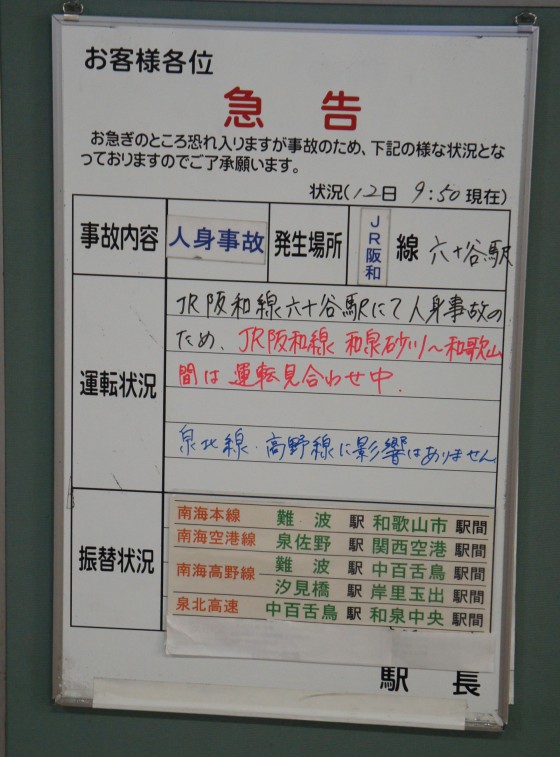 お客様各位
急告
お急ぎのところ恐れ入りますが事故のため、下記の様な状況とな
っておりますのでご了承願います。
状況(12日 9:50現在)
事故内容 人身事故 発生場所 JR阪和 線 六十谷駅
運転状況
JR阪和線六十谷駅にて人身事故の
ため、JR阪和線 和泉砂川～和歌山
間は運転見合わせ中.
泉北線・高野線に影響はありません
振替状況
南海本線 難波 駅 和歌山市 駅間
南海空港線 泉佐野 駅 関西空港 駅間
南海高野線 難波 駅 中百舌鳥 駅間
汐見橋 駅 岸里玉出 駅間
泉北高速 中百舌鳥 駅 和泉中央 駅間
駅長